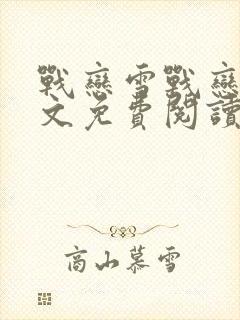 戰戀雪戰戀
文免費閱讀
高山慕雪